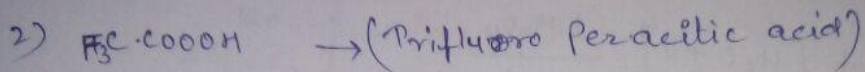 2) F₃C.COOOH → (Trifluoro Peracitic acid)